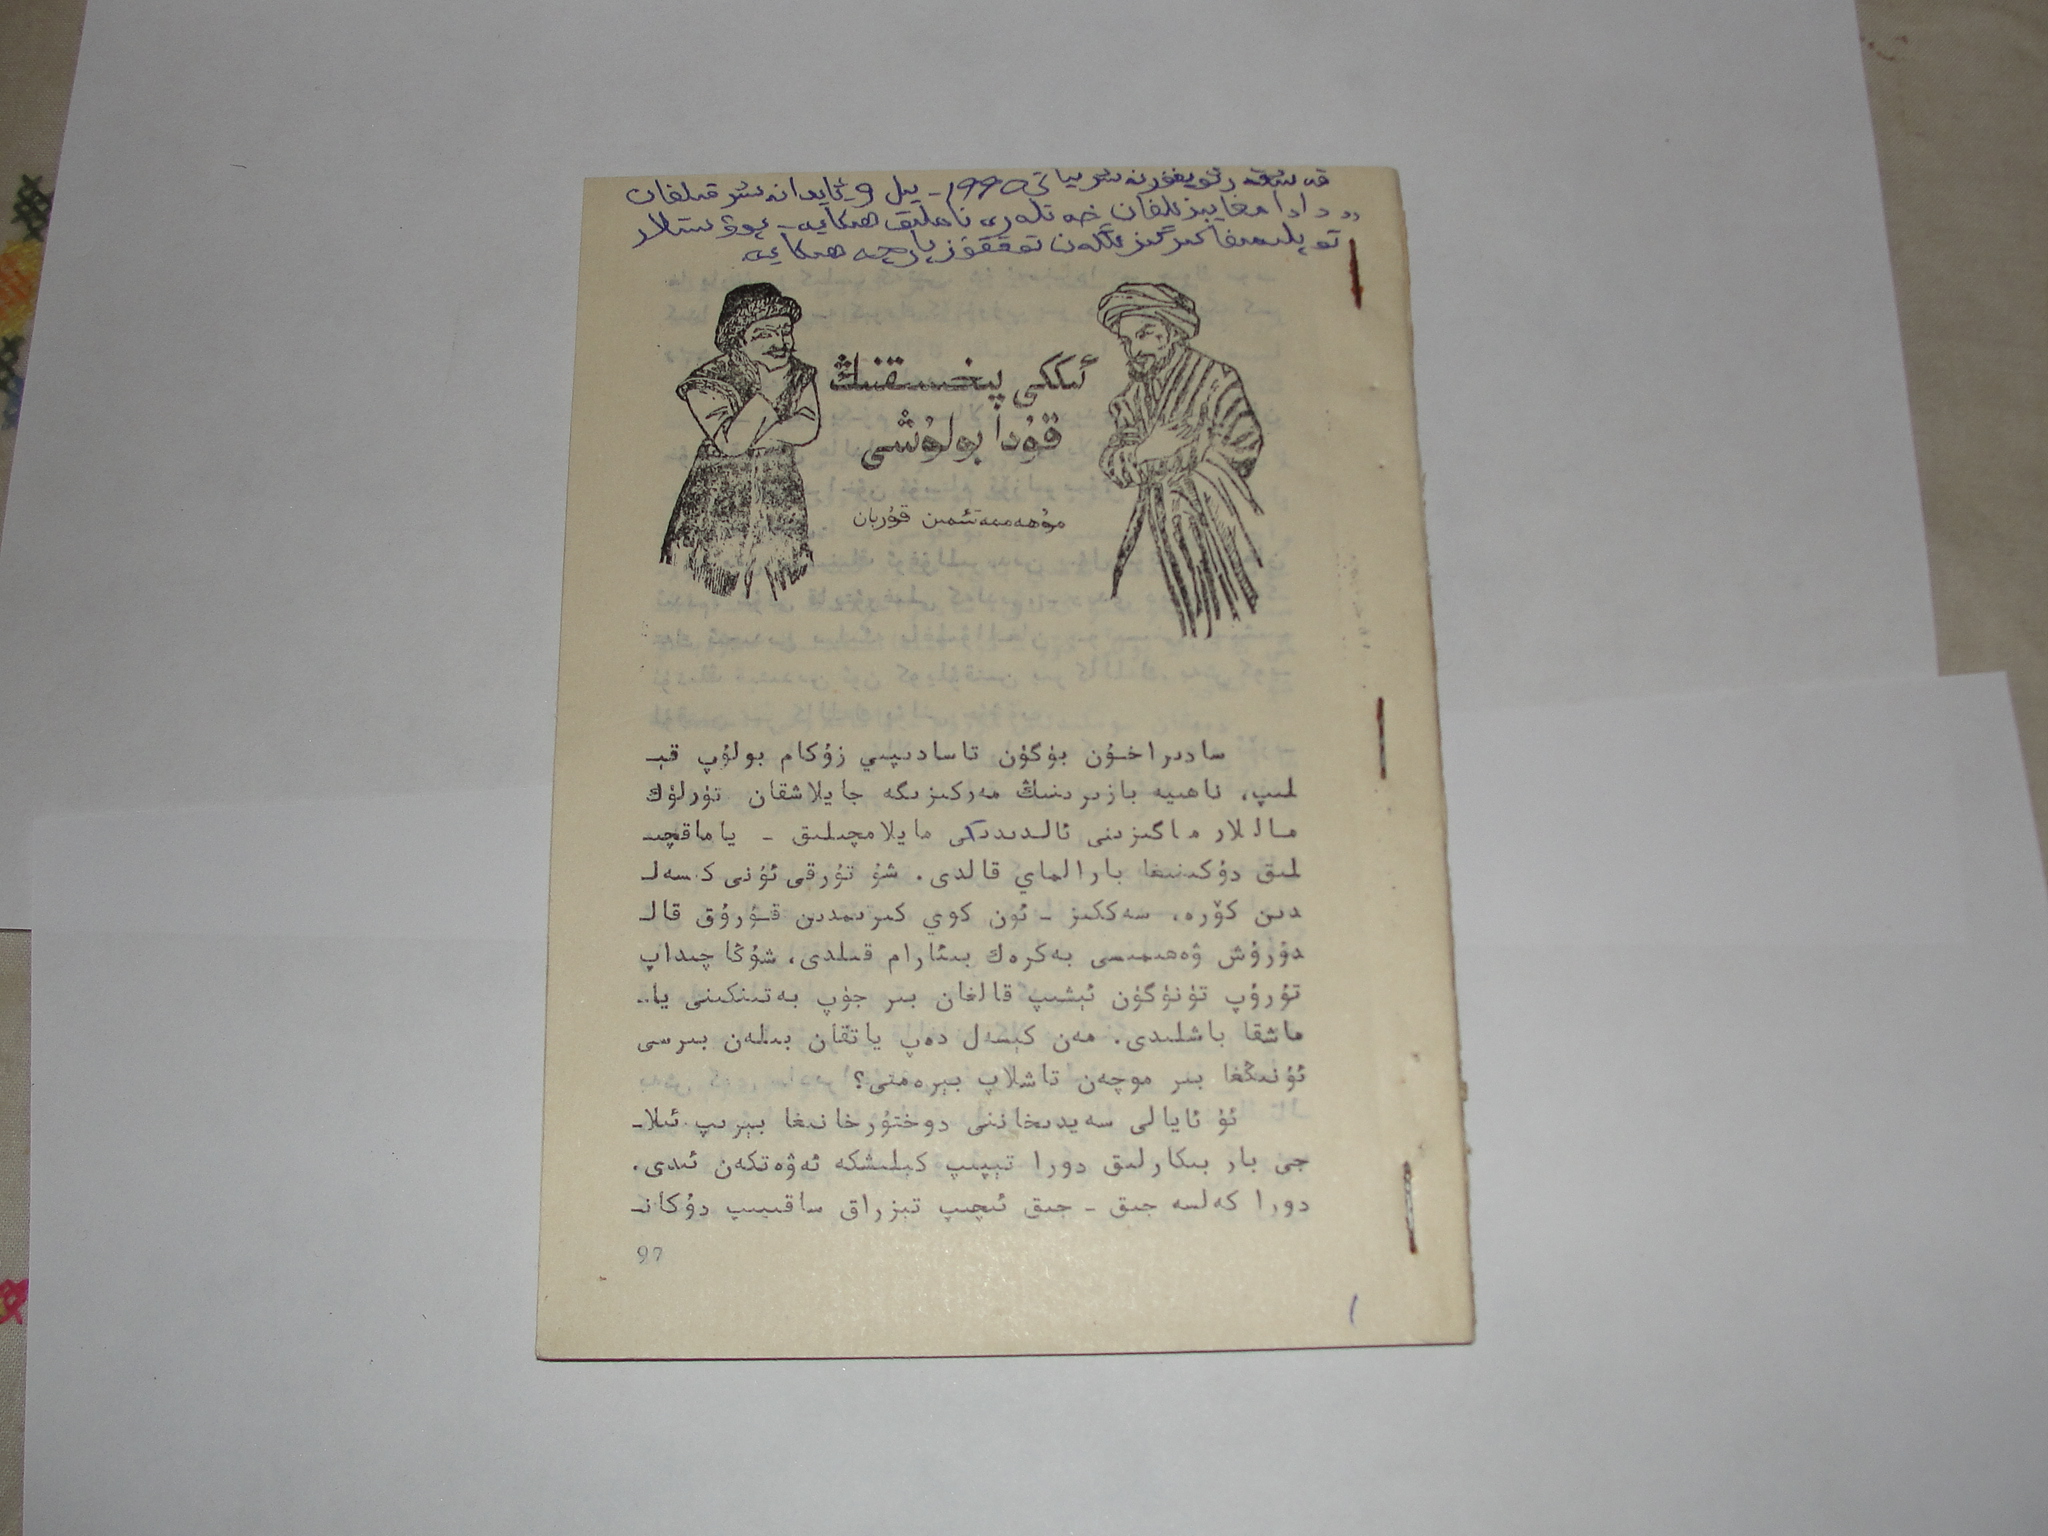 قەشقەر ئۇيغۇر نەشرىياتى 1990ـ يىل 9 ئايدا نەشر قىلغان
توپلىمىغا كىرگىزىلگەن توققۇز پارچە ھىكايە
ئىككى پىخسىقنىڭ
قۇدا بولۇشى
مۇھەممەتئىمىن قۇربان
سادىراخۇن بۈگۈن تاسادىپىي زۇكام بولۇپ قېـ
لىپ، ناھىيە بازىرىنىڭ مەركىزىگە جايلاشقان تۈرلۈك
ماللار ماگىزىنى ئالدىدىكى مايلامچىلىق ـ ياماقچىـ
لىق دۇكىنىغا بارالماي قالدى. شۇ تۇرقى ئۇنى كىسەلـ
دىن كۆرە، سەككىز ـ ئون كوي كىرىمدىن قۇرۇق قالـ
دۇرۇش ۋەھىمىسى بەكرەك بىئارام قىلدى، شۇڭا چىداپ
تۇرۇپ تۈنۈگۈن ئېشىپ قالغان بىر جۈپ بەتىنكىنى ياـ
ماشقا باشلىدى. مەن كېسەل دەپ ياتقان بىلەن بىرسى
ئۇنىڭغا بىر موچەن تاشلاپ بېرەمتى؟
ئۇ ئايالى سەيدىخاننى دوختۇرخانىغا بېرىپ ئىلاـ
جى بار بىكارلىق دورا تېپىپ كېلىشكە ئەۋەتكەن ئىدى.
دورا كەلسە جىق ـ جىق ئىچىپ تېزراق ساقىيىپ دۇكانـ
97